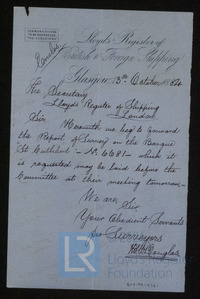 Lloyd's Register of
British & Foreign Shipping
Glasgow, 13th October 1884
The Secretary
Lloyd's Register of Shipping
London
Sir
Herewith we beg to forward
the Report of Survey on the Barque
St Cuthbert - No 6681 - which it
is requested may be laid before the
Committee at their meeting tomorrow -
We are Sir
Your Obedient Servants
The Surveyors
LR
Lloyd's Register
Foundation